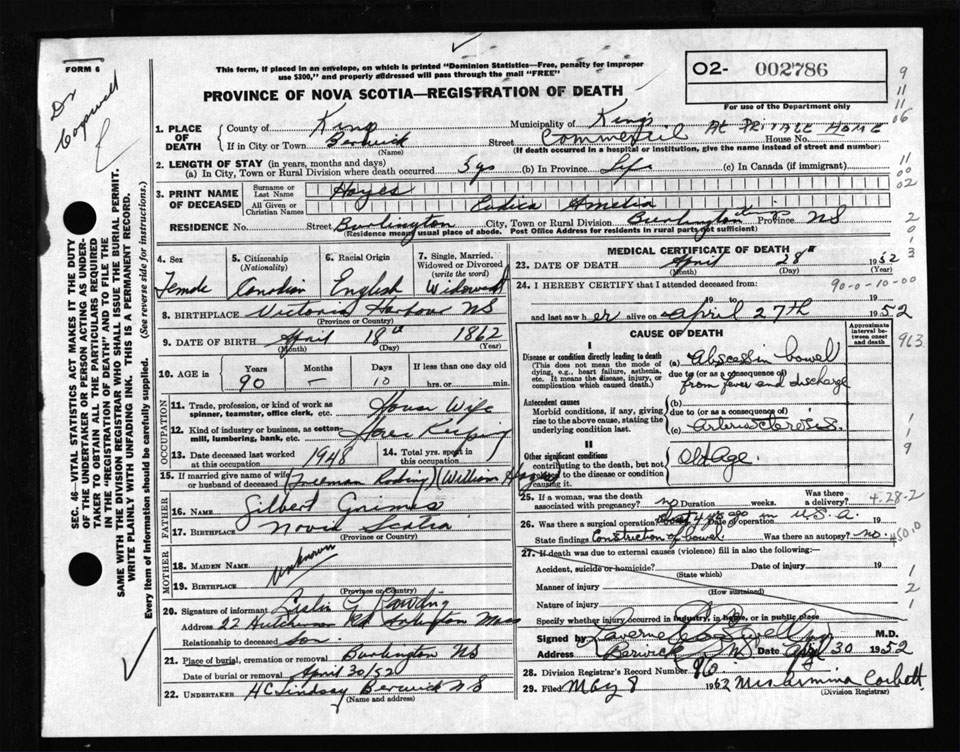 FORM 6
This form, if placed in an envelope, on which is printed "Dominion Statistics—Free, penalty for improper
use $300," and properly addressed will pass through the mail "FREE"
O2- 002786
PROVINCE OF NOVA SCOTIA—REGISTRATION OF DEATH
For use of the Department only
Dr
Cogswell
1. PLACE OF DEATH
County of Kings
Municipality of Kings
If in City or Town Berwick
(Name)
Street Commercil House No. AT PRIVATE HOME
(If death occurred in a hospital or institution, give the name instead of street and number)
2. LENGTH OF STAY (in years, months and days)
(a) In City, Town or Rural Division where death occurred 5 ys (b) In Province Life (c) In Canada (if immigrant)
3. PRINT NAME OF DECEASED
Surname or Last Name Hayes
All Given or Christian Names Amelia
RESIDENCE No. Street Burlington City, Town or Rural Division Burlington Province NS
(Residence means usual place of abode. Post Office Address for residents in rural parts not sufficient)
4. Sex
Female
5. Citizenship
(Nationality)
Canadian
6. Racial Origin
English
7. Single, Married, Widowed or Divorced
(write the word)
Widowed
8. BIRTHPLACE Victoria Harbour NS
(Province or Country)
9. DATE OF BIRTH April 18th 1862
(Month) (Day) (Year)
10. AGE in
Years Months Days If less than one day old
90 — 10 hrs. or min.
OCCUPATION
11. Trade, profession, or kind of work as spinner, teamster, office clerk, etc. House Wife
12. Kind of industry or business, as cotton-mill, lumbering, bank, etc. House Keeping
13. Date deceased last worked at this occupation 1948
14. Total yrs. spent in this occupation
15. If married give name of wife or husband of deceased Freeman Rawding William Hayes
FATHER
16. NAME Gilbert Grimes
17. BIRTHPLACE Nova Scotia
(Province or Country)
MOTHER
18. MAIDEN NAME
19. BIRTHPLACE
unknown
(Province or Country)
20. Signature of informant Leslie G Rawding
Address 22 Hutchinson Rd Arlington Mass
Relationship to deceased Son
21. Place of burial, cremation or removal Burlington NS
Date of burial or removal April 30/52
22. UNDERTAKER H C Lindsay Berwick NS
(Name and address)
MEDICAL CERTIFICATE OF DEATH
23. DATE OF DEATH April 28th 1952
(Month) (Day) (Year)
24. I HEREBY CERTIFY that I attended deceased from:
90-0-10-00
19 to 19
and last saw her alive on April 27th 1952
CAUSE OF DEATH
Approximate interval between onset and death
I
Disease or condition directly leading to death
(This does not mean the mode of dying, e.g., heart failure, asthenia, etc. It means the disease, injury, or complication which caused death.)
(a) Abscess in bowel
due to (or as a consequence of)
from fever and discharge
Antecedent causes
Morbid conditions, if any, giving rise to the above cause, stating the underlying condition last.
(b)
due to (or as a consequence of)
(c) Arteriosclerosis.
II
Other significant conditions
contributing to the death, but not related to the disease or condition causing it.
Old Age.
25. If a woman, was the death associated with pregnancy? no Duration weeks. Was there a delivery?
4-28-2
26. Was there a surgical operation? 4 yrs ago in U.S.A. Date of operation 19
State findings Constriction of bowel. Was there an autopsy? no.
450.0
27. If death was due to external causes (violence) fill in also the following:—
Accident, suicide or homicide? Date of injury 19
(State which)
Manner of injury
(How sustained)
Nature of injury
Specify whether injury occurred in industry, in home, or in public place
Signed by M.D.
Address Berwick N.S. Date Apr 30 1952
28. Division Registrar's Record Number 96
29. Filed May 8 1952 Mrs Armina Corbett
(Division Registrar)
SEC. 46—VITAL STATISTIC ACT MAKES IT THE DUTY
OF THE UNDERTAKER OR PERSON ACTING AS UNDER-
TAKER TO OBTAIN ALL THE PARTICULARS REQUIRED
IN THE "REGISTRATION OF DEATH" AND TO FILE THE
SAME WITH THE DIVISION REGISTRAR WHO SHALL ISSUE THE BURIAL PERMIT.
WRITE PLAINLY WITH UNFADING INK. THIS IS A PERMANENT RECORD.
Every item of information should be carefully supplied. (See reverse side for instructions.)
9
11
11
16
11
00
02
2
0
1
3
963
1
9
1
2
1